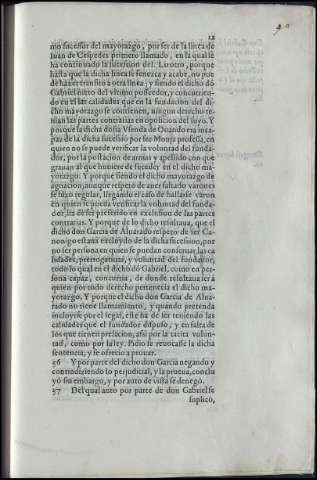 12
mo sucessor del mayorazgo, por ser de la linea de
Iuan de Cespedes primero llamado, en la qual se
ha continuado la sucesion del. Lo otro, porque
hasta que la dicha linea se fenezca y acabe, no pue
de hazer transito a otra linea: y siendo el dicho dō
Gabriel nieto del vltimo posseedor, y concurrien-
do en el las calidades que en la fundacion del di-
cho mayorazgo se contienen, ningun derecho te-
nian las partes contrarias en oposicion del suyo. Y
porque la dicha doña Visenda de Quando era incapaz
de la dicha sucesion por ser Monja professa, en
quien no se puede verificar la voluntad del funda-
dor, por la postacion de armas y apellido con que
grauan al que huuiere de suceder en el dicho ma-
yorazgo: Y porque siendo el dicho mayorazgo de
agnacion, aunque respeto de auer faltado varones
se hizo regular, llegando el caso de hallarse varon
en quien se pueda verificar la voluntad del funda-
dor, ha de ser preferido en exclusion de las partes
contrarias. Y porque de lo dicho resultaua, que el
dicho don Garcia de Aluarado respeto de ser Ca-
nonigo estaua excluydo de la dicha sucession, por
no ser persona en quien se puedan conseruar las ca
lidades, prerrogatiuas, y voluntad del fundador,
todo lo qual en el dicho dō Gabriel, como en per-
sona capaz, concurria, de donde resultaua ser a
quien por todo derecho pertenecia el dicho ma-
yorazgo. Y porque el dicho don Garcia de Alua-
rado no tiene llamamiento, y quando pretenda
incluyrse por el legal, este ha de ser teniendo las
calidades que el fundador dispuso, y en falta de
los que tienen prelacion, assi por la tacita volun-
tad, como por la ley. Pidio se reuocasse la dicha
sentencia, y se ofrecio a prouar.
56 Y por parte del dicho don Garcia negando y
contradiziendo lo perjudicial, y la prueua, conclu
yó sin embargo, y por auto de vista se denegò.
57 Del qual auto por parte de don Gabriel se
suplicò,